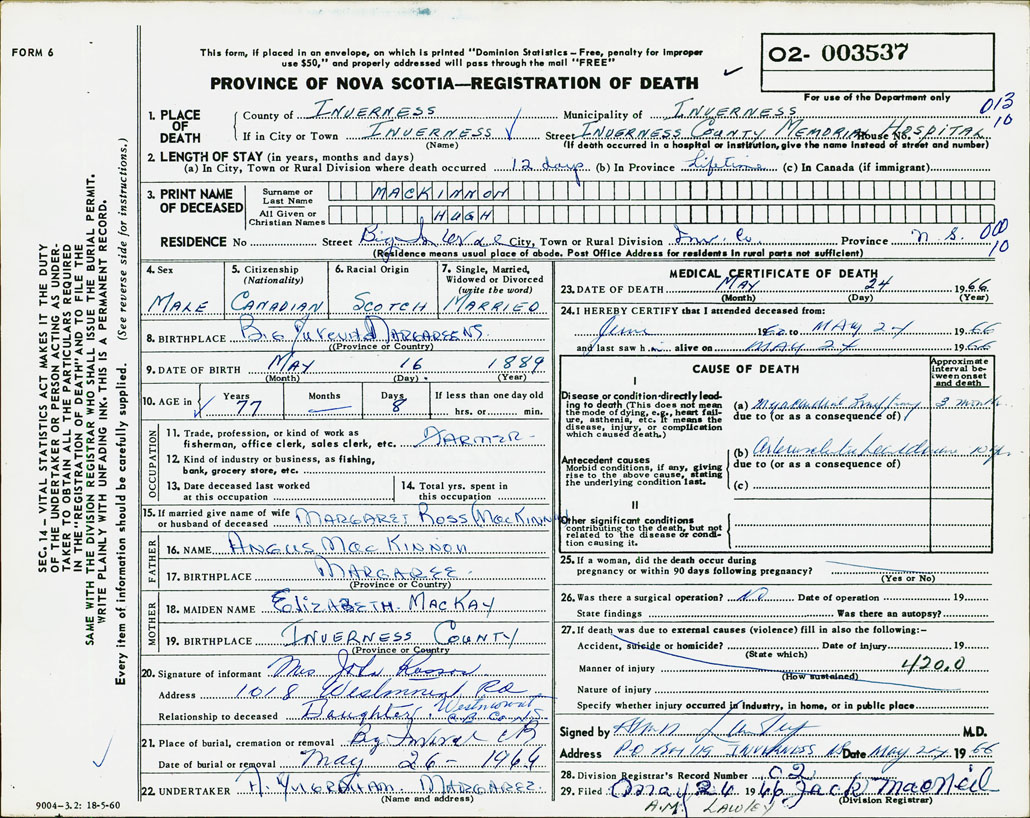 FORM 6
This form, if placed in an envelope, on which is printed "Dominion Statistics – Free, penalty for improper
use $50," and properly addressed will pass through the mail "FREE"
O2- 003537
PROVINCE OF NOVA SCOTIA—REGISTRATION OF DEATH
For use of the Department only
013
10
1. PLACE OF DEATH
County of INVERNESS Municipality of INVERNESS
If in City or Town INVERNESS Street INVERNESS COUNTY MEMORIAL HOSPITAL House No.
(Name) (If death occurred in a hospital or institution, give the name instead of street and number)
2. LENGTH OF STAY (in years, months and days)
(a) In City, Town or Rural Division where death occurred 12 days (b) In Province lifetime (c) In Canada (if immigrant)
3. PRINT NAME OF DECEASED
Surname or Last Name MACKINNON
All Given or Christian Names HUGH
RESIDENCE No Street Big City, Town or Rural Division Inv. Co. Province N.S. 000
10
(Residence means usual place of abode. Post Office Address for residents in rural parts not sufficient)
4. Sex MALE
5. Citizenship (Nationality) CANADIAN
6. Racial Origin SCOTCH
7. Single, Married, Widowed or Divorced (write the word) MARRIED
8. BIRTHPLACE BIG
(Province or Country)
9. DATE OF BIRTH MAY 16 1889
(Month) (Day) (Year)
10. AGE in Years 77 Months — Days 8 If less than one day old hrs. or min.
OCCUPATION
11. Trade, profession, or kind of work as
fisherman, office clerk, sales clerk, etc. FARMER
12. Kind of industry or business, as fishing,
bank, grocery store, etc.
13. Date deceased last worked
at this occupation
14. Total yrs. spent in
this occupation
15. If married give name of wife
or husband of deceased MARGARET ROSS (MACKINNON
FATHER
16. NAME ANGUS MACKINNON
17. BIRTHPLACE MARGAREE
(Province or Country)
MOTHER
18. MAIDEN NAME ELIZABETH MACKAY
19. BIRTHPLACE INVERNESS COUNTY
(Province or Country)
20. Signature of informant Mrs John
Address 1018 Westmount Rd
Westmount
C.B. Co. N.S.
Relationship to deceased Daughter
21. Place of burial, cremation or removal Big CB
Date of burial or removal May 26 - 1966
22. UNDERTAKER MARGAREE
(Name and address)
9004-3.2: 18-5-60
MEDICAL CERTIFICATE OF DEATH
23. DATE OF DEATH MAY 24 1966
(Month) (Day) (Year)
24. I HEREBY CERTIFY that I attended deceased from:
June 19 to MAY 24 1966
and last saw him alive on MAY 24 1966
CAUSE OF DEATH
Approximate interval between onset and death
I
Disease or condition directly leading to death (This does not mean
the mode of dying, e.g., heart failure, asthenia, etc. It means the
disease, injury, or complication
which caused death.)
(a) Myocardial 3 months
due to (or as a consequence of)
Antecedent causes
Morbid conditions, if any, giving
rise to the above cause, stating
the underlying condition last.
(b) 10 yrs
due to (or as a consequence of)
(c)
II
Other significant conditions
contributing to the death, but not
related to the disease or condition causing it.
25. If a woman, did the death occur during
pregnancy or within 90 days following pregnancy?
(Yes or No)
26. Was there a surgical operation? NO Date of operation 19
State findings Was there an autopsy?
27. If death was due to external causes (violence) fill in also the following:–
Accident, suicide or homicide? Date of injury 19
(State which)
Manner of injury 420.0
(How sustained)
Nature of injury
Specify whether injury occurred in industry, in home, or in public place
Signed by M.D.
Address P.O. Box 119 INVERNESS NS Date MAY 24 1966
28. Division Registrar's Record Number 02
29. Filed May 26 1966 Jack MacNeil
(Division Registrar)
A.M. LAWLEY
SEC. 14 – VITAL STATISTICS ACT MAKES IT THE DUTY
OF THE UNDERTAKER OR PERSON ACTING AS UNDER-
TAKER TO OBTAIN ALL THE PARTICULARS REQUIRED
IN THE "REGISTRATION OF DEATH" AND TO FILE THE
SAME WITH THE DIVISION REGISTRAR WHO SHALL ISSUE THE BURIAL PERMIT.
WRITE PLAINLY WITH UNFADING INK. THIS IS A PERMANENT RECORD.
Every item of information should be carefully supplied. (See reverse side for instructions.)